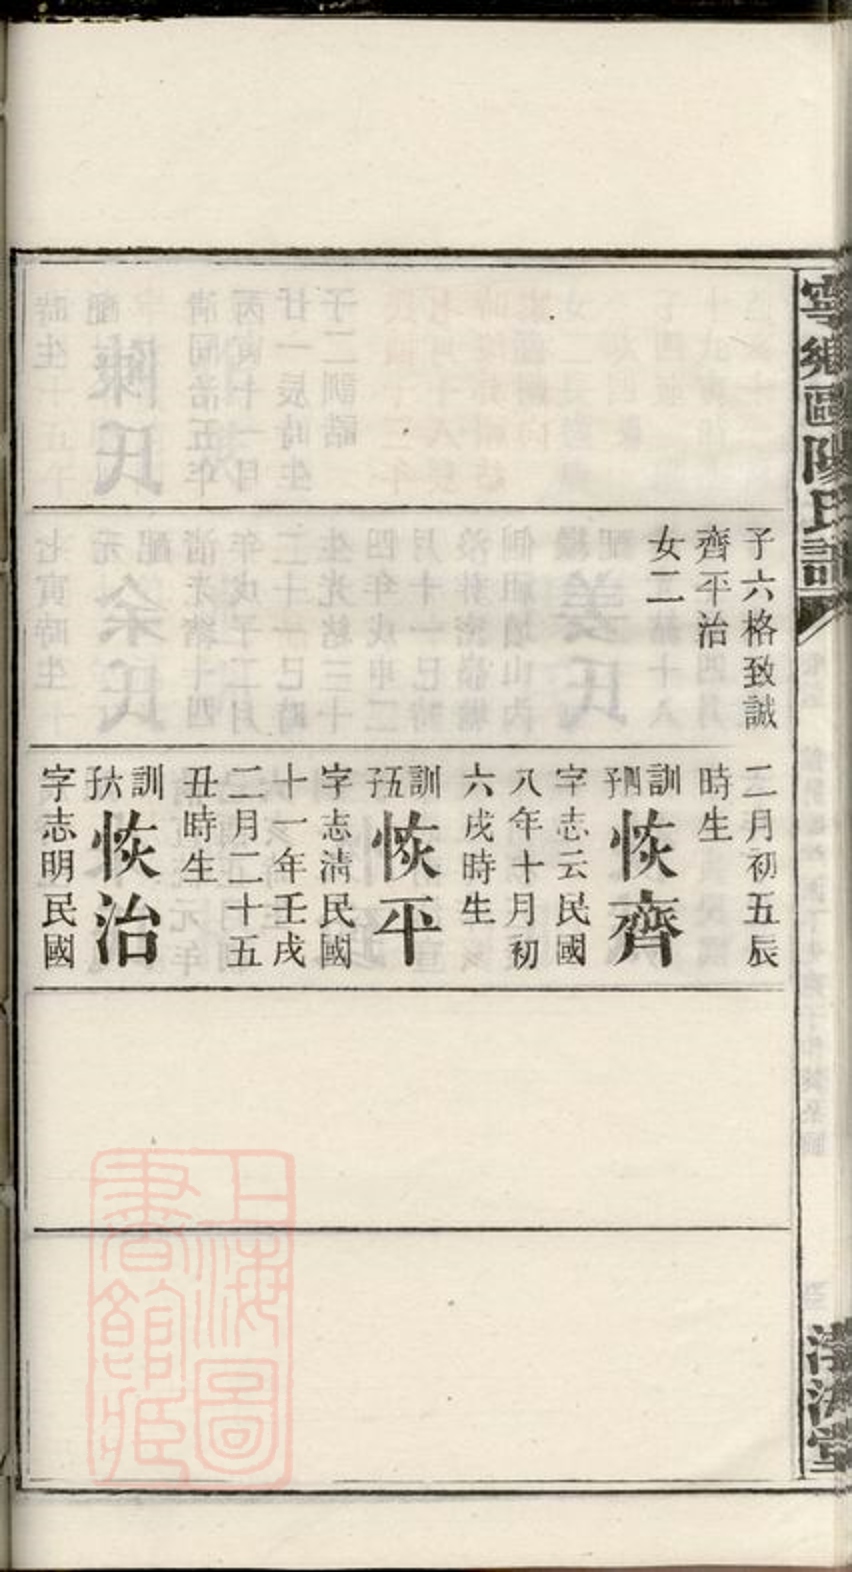 寧鄉歐陽氏譜
渤海堂
子六格致誠
齊平治
女二
二月初五辰
時生
訓四子恢齊
字志云民國
八年十月初
六戌時生
訓五子恢平
字志清民國
十一年壬戌
二月二十五
丑時生
訓六子恢治
字志明民國
上海圖
書館藏